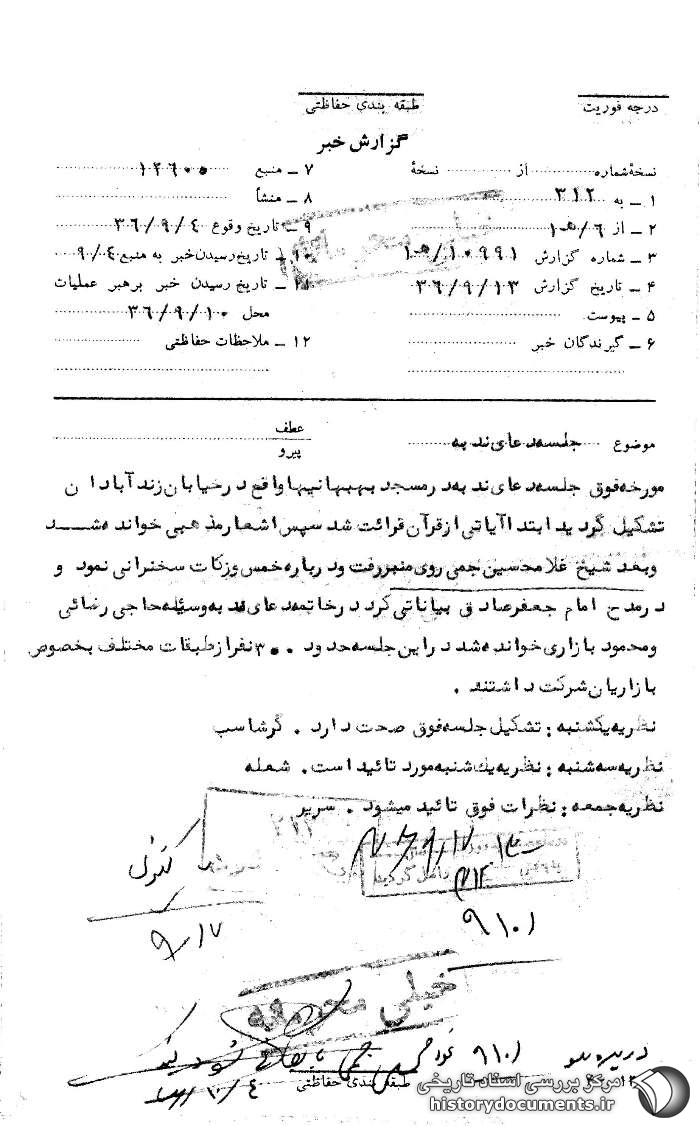 درجه فوریت
طبقه بندی حفاظتی
گزارش خبر
نسخهٔ شماره از نسخهٔ
۱ ـ به ۳۱۲
۲ ـ از ۶/ه۱
۳ ـ شماره گزارش ۱۰۹۹۱/ه۱
۴ ـ تاریخ گزارش ۳۶/۹/۱۳
۵ ـ پیوست
۶ ـ گیرندگان خبر
۷ ـ منبع ۱۲۶۰۰
۸ ـ منشأ
۹ ـ تاریخ وقوع ۳۶/۹/۴
۱۰ ـ تاریخ رسیدن خبر به منبع ۹/۰۴
۱۱ ـ تاریخ رسیدن خبر برهبر عملیات
محل ۳۶/۹/۱۰
۱۲ ـ ملاحظات حفاظتی
خیلی محرمانه
موضوع جلسه دعای ندبه
عطف
پیرو
مورخه فوق جلسه دعای ندبه در مسجد بهبهانیها واقع در خیابان زند آبادان
تشکیل گردید ابتدا آیاتی از قرآن قرائت شد سپس اشعار مذهبی خوانده شد
و بعد شیخ غلامحسین جمی روی منبر رفت و درباره خمس و زکات سخنرانی نمود و
در مدح امام جعفر صادق بیاناتی کرد در خاتمه دعای ندبه به وسیله حاجی رضائی
و محمود بازاری خوانده شد در این جلسه حدود ۳۰۰ نفر از طبقات مختلف بخصوص
بازاریان شرکت داشتند .
نظریه یکشنبه : تشکیل جلسه فوق صحت دارد . گرشاسب
نظریه سه شنبه : نظریه یك شنبه مورد تائید است . شعله
نظریه جمعه : نظرات فوق تائید میشود . سریر
۳۱۲
۹/۱۷
۹۱۰۱
خیلی محرمانه
۹۱۰۱
۱۰/۴
طبقه بندی حفاظتی
مرکز بررسی اسناد تاریخی
historydocuments.ir